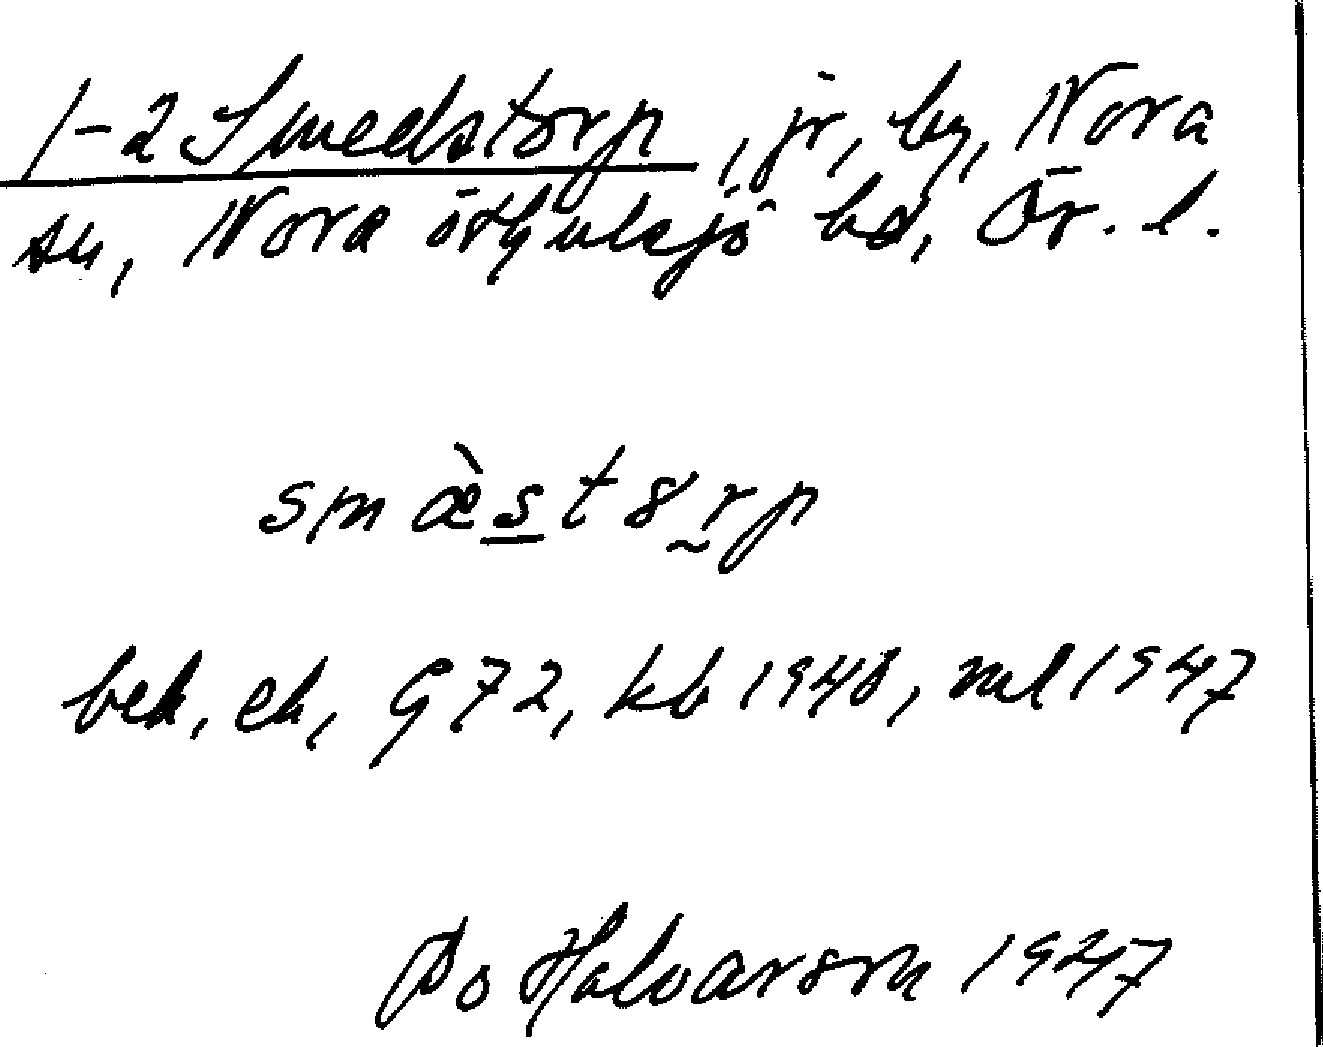 1-2 Smedstorp, jr, by, Nora
sn, Nora o Hjulsjö bd, Ör. l.
smæ̀s̲t8r̰p
bek, ek, G72, kb 1940, ml 1947
Bo Halvarson 1947